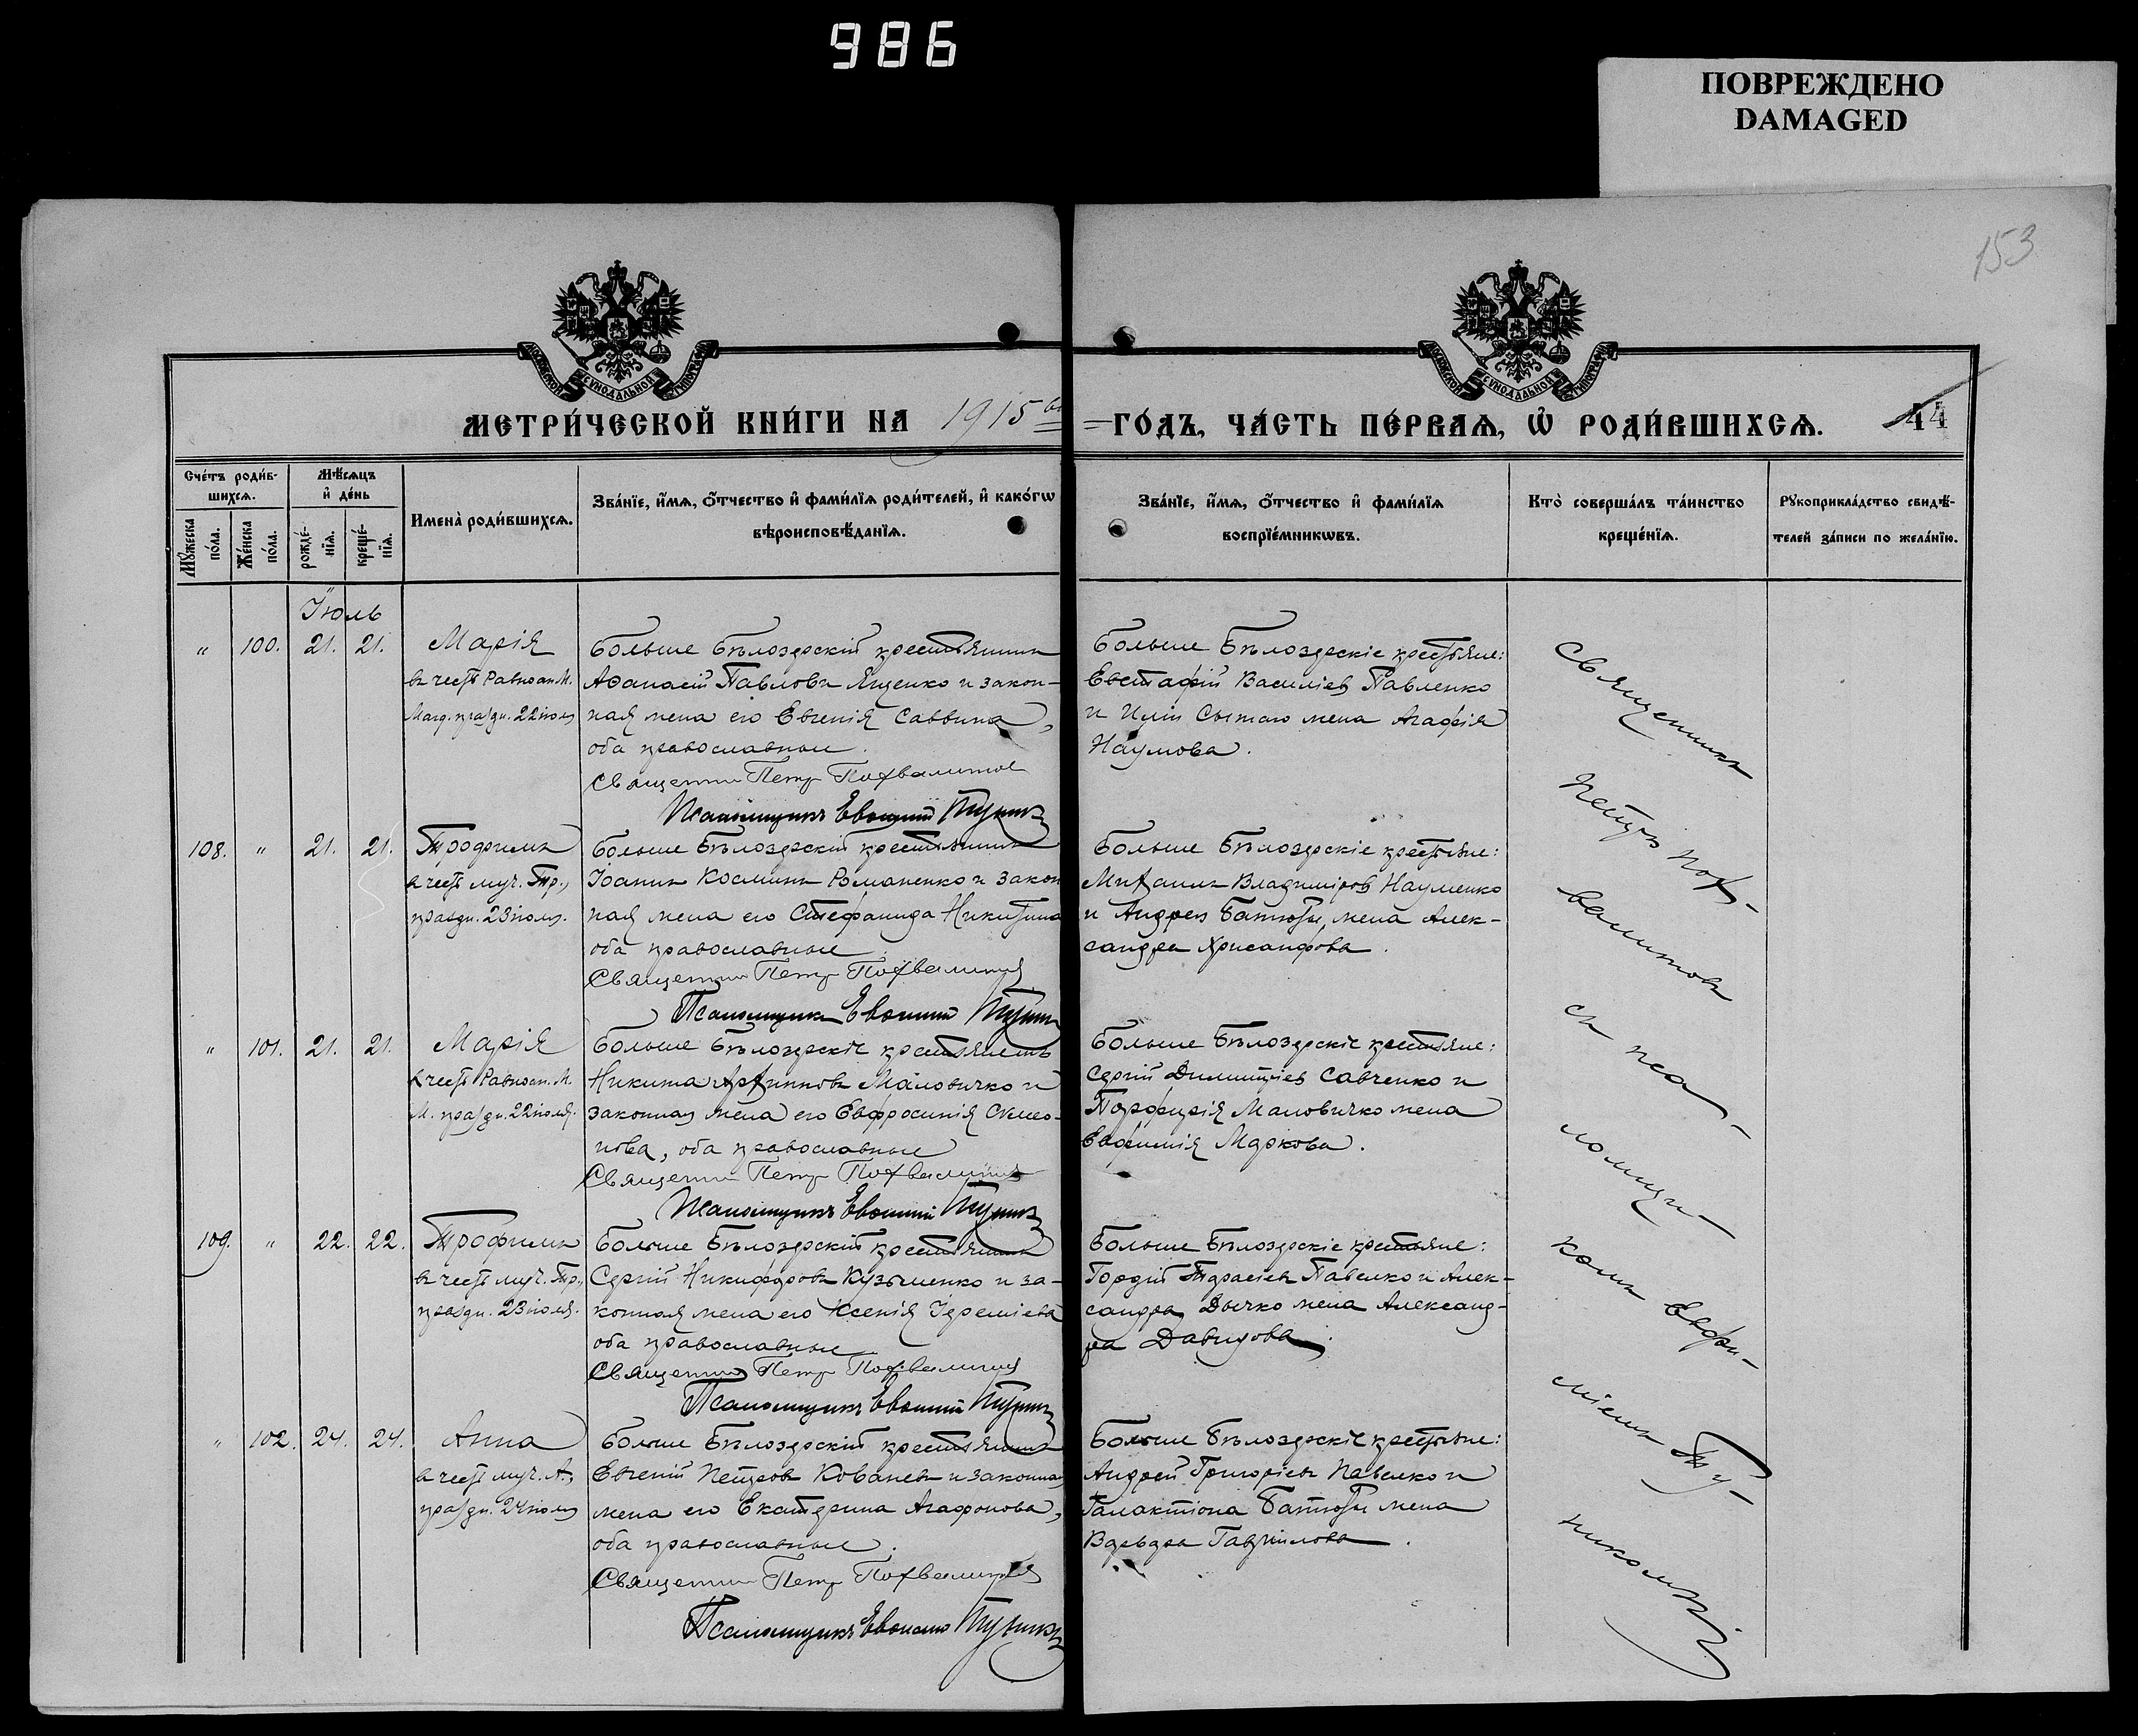 986
ПОВРЕЖДЕНО
DAMAGED
153
МОСКОВСКОЙ СУНОДАЛЬНОЙ ТИПОГРАФІИ
МОСКОВСКОЙ СУНОДАЛЬНОЙ ТИПОГРАФІИ
МЕТРИ́ЧЕСКОЙ КНИ́ГИ НА 1915
ГО́ДЪ, ЧА́СТЬ ПЕ́РВАѦ, Ѽ РОДИ́ВШИХСѦ.
44
Сче́тъ роди́в-
шихсѧ.
Мꙋ́жеска по́ла.
Же́нска по́ла.
Мѣ́сѧцъ и҆ де́нь
рожде́-нїѧ.
креще́-нїѧ.
Имена̀ роди́вшихсѧ.
Зва́нїе, и҆́мѧ, ѻ҆́тчество и҆ фами́лїѧ роди́телей, и҆ како́гѡ
вѣроисповѣ́данїѧ.
Зва́нїе, и҆́мѧ, ѻ҆́тчество и҆ фами́лїѧ
воспрїе́мникѡвъ.
Кто̀ соверша́лъ та́инство
креще́нїѧ.
Рꙋкоприкла́дство свидѣ́-
телей за́писи по жела́нїю.
Іюль
" 100. 21. 21. Марія
въ честь Равноап. М.
Магд. праздн. 22 іюля
Больше Бѣлозерскій крестьянинъ
Аѳанасій Павловъ Яценко и закон-
ная жена его Евгенія Саввина,
оба православные.
Священник Петр Похвалитов
Псаломщикъ Евфимий
Больше Бѣлозерскіе крестьяне:
Евстафій Василіевъ Павленко
и Иліи Сытаго жена Агафія
Наумова.
108. " 21. 21. Трофимъ
въ честь муч. Тр.,
праздн. 23 іюля.
Больше Бѣлозерскій крестьянинъ
Іоаннъ Косминъ Романенко и закон
ная жена его Стефанида Никитина
оба православные
Священник Петр Похвалитов
Псаломщикъ Евфимий
Больше Бѣлозерскіе крестьяне:
Михаилъ Владиміровъ Науменко
и Андрея жена Алек-
сандра Хрисанфова.
" 101. 21. 21. Марія
въ честь Равноап. М.
М. праздн. 22 іюля.
Больше Бѣлозерскіе крестьянинъ
Никита Маловичко и
законная жена его Евфросинія Симео-
нова, оба православные
Священник Петр Похвалитов
Псаломщикъ Евфимий
Больше Бѣлозерскіе крестьяне:
Сергій Димитріевъ Савченко и
Порфирія Маловичко жена
Евфимія Маркова.
109. " 22. 22. Трофимъ
въ честь муч. Тр.,
праздн. 23 іюля.
Больше Бѣлозерскій крестьянинъ
Сергій Никифоровъ Кузьменко и за-
конная жена его Ксенія Іереміева
оба православные
Священник Петр Похвалитов
Псаломщикъ Евфимий
Больше Бѣлозерскіе крестьяне:
Гордій Тарасіевъ Павелко и Алек-
сандра Дычко жена Александ-
ра Давидова.
" 102. 24. 24. Анна
въ честь муч. А.,
праздн. 24 іюля
Больше Бѣлозерскій крестьянинъ
Евгеній Петровъ Ковалевъ и законная
жена его Екатерина Агафонова,
оба православные.
Священник Петр Похвалитов
Псаломщикъ Евфимий
Больше Бѣлозерскіе крестьяне:
Андрей Григоріевъ Павелко и
Галактіона жена
Варвара Гавріилова.
Священникъ
Петръ Пох-
валитовъ
съ пса-
ломщи-
комъ Евфи-
міемъ Ту-